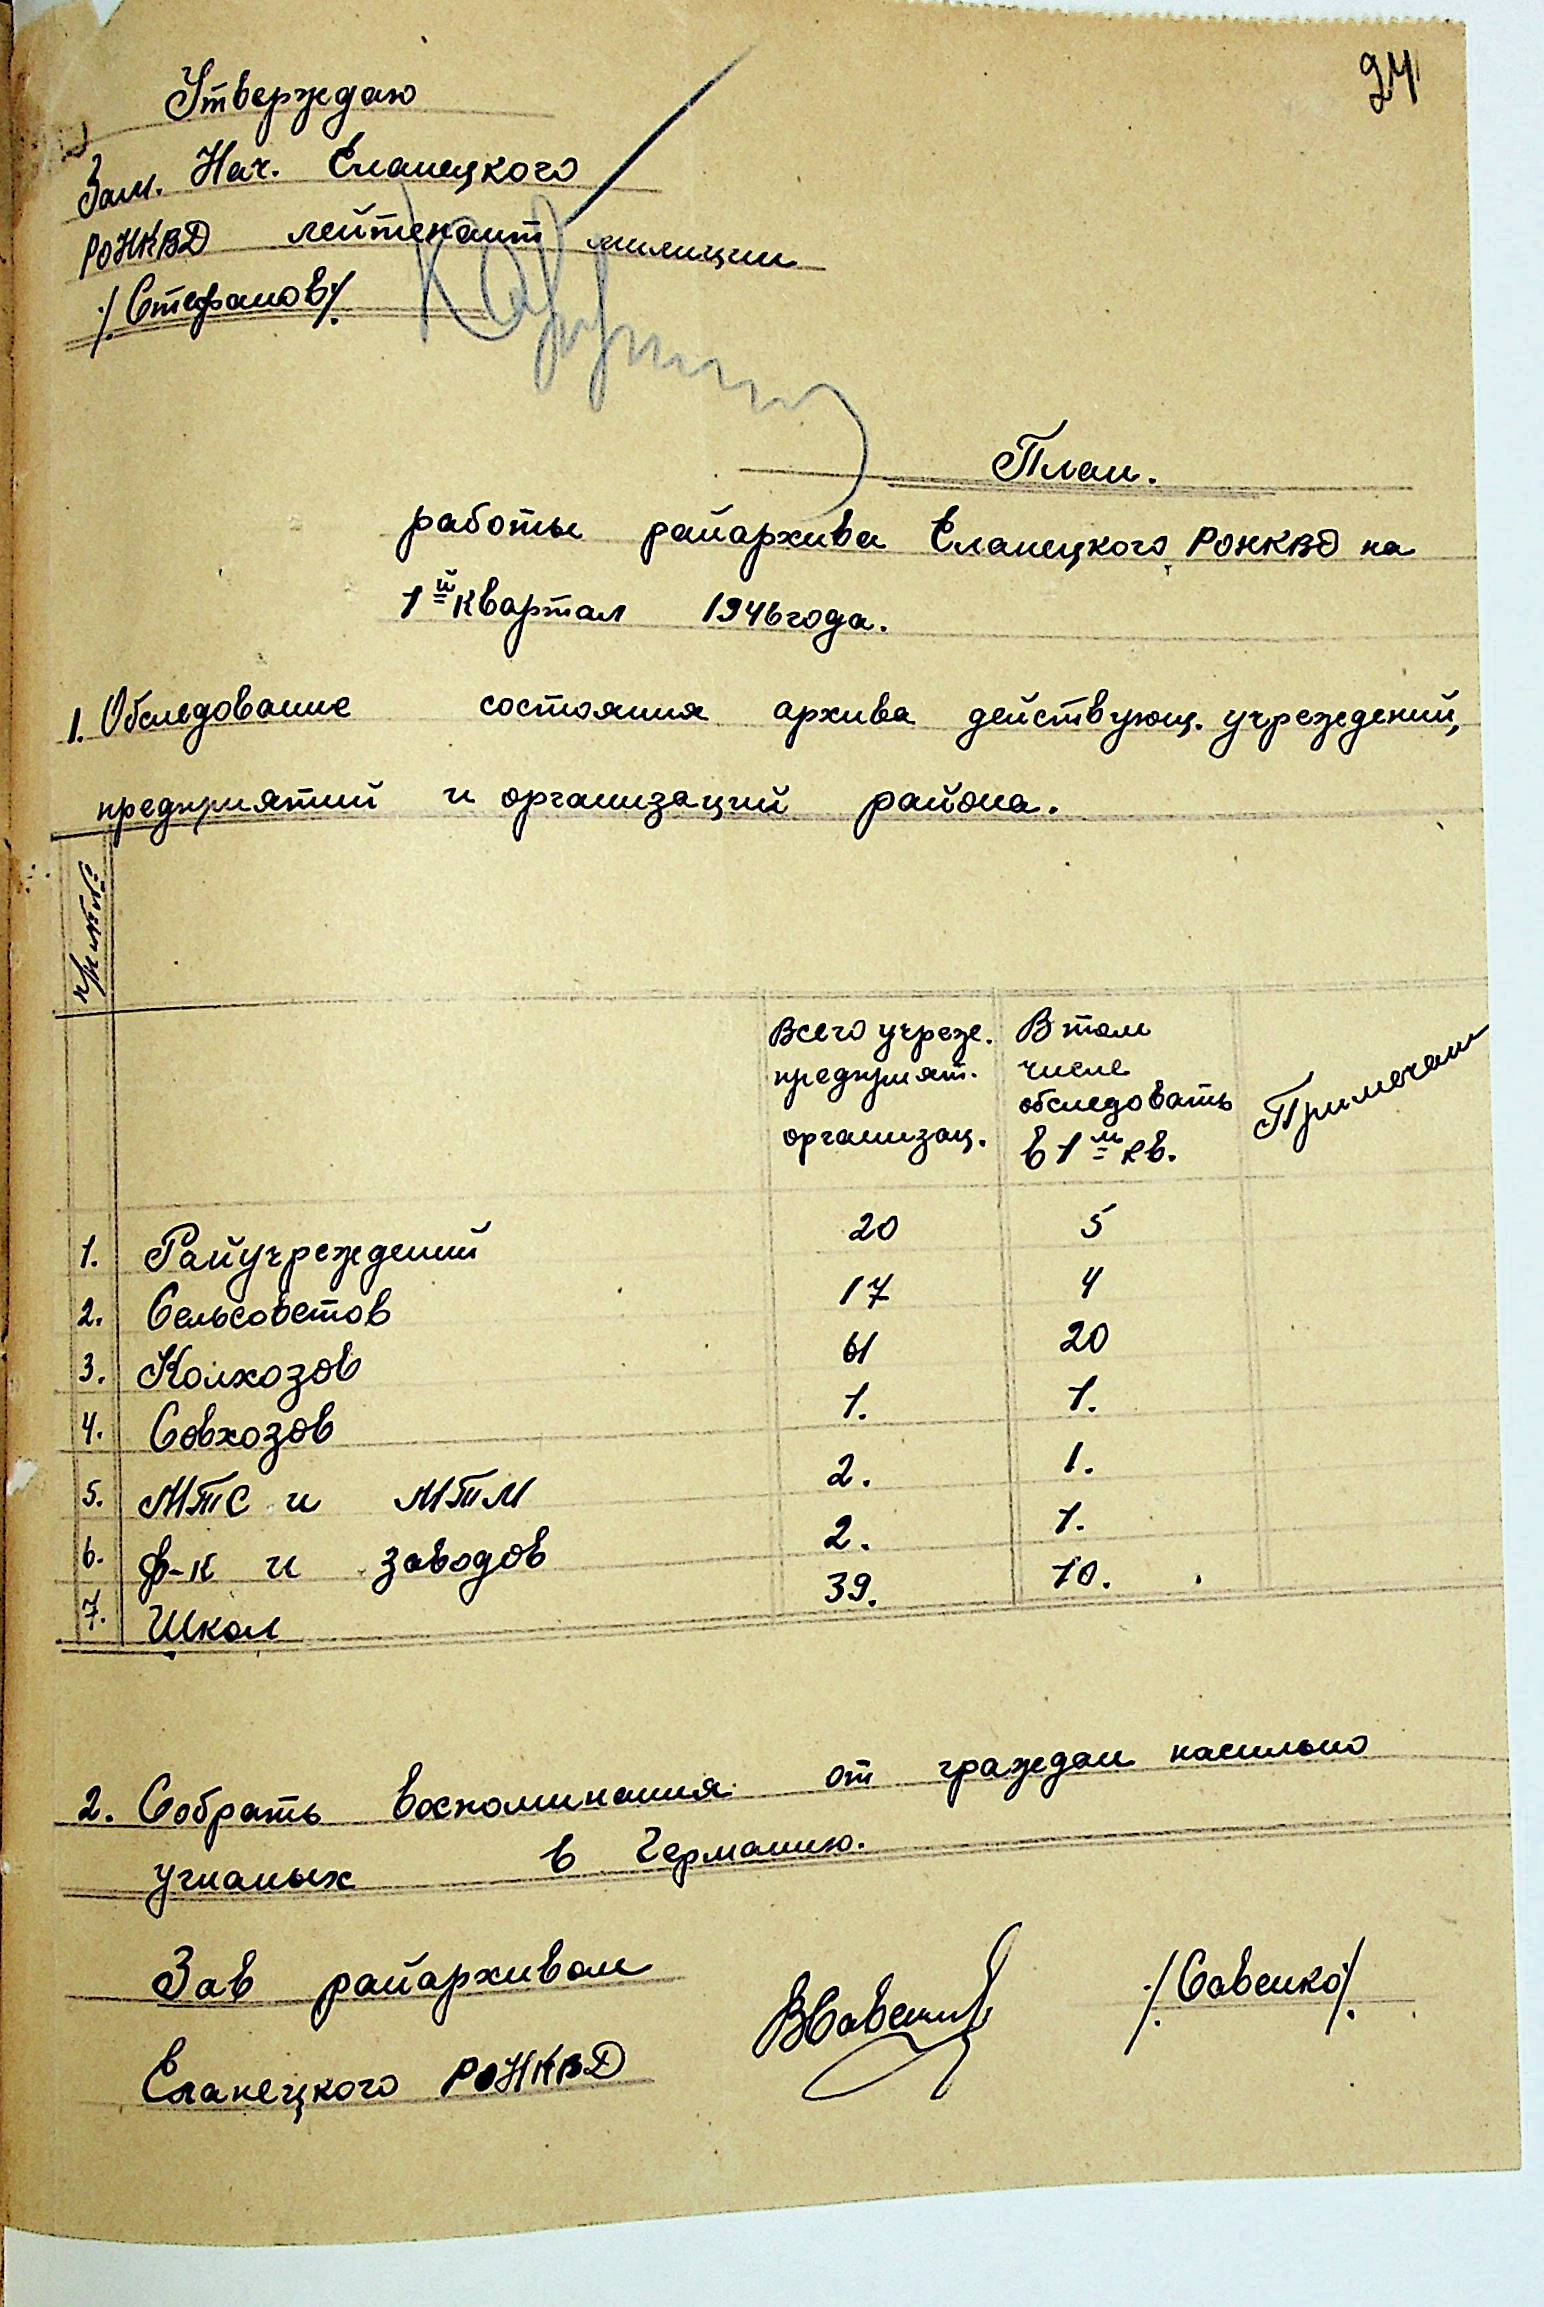 24
Утверждаю
Зам. Нач. Еланецкого
РОНКВД лейтенант милиции
/Стефанов/.
План.
работы райархива Еланецкого РОНКВД на
1й квартал 1946 года.
1. Обследование состояния архива действующ. учреждений,
предприятий и организаций района.
Всего учреж. предприят. организац.
В том числе обследовать в 1м кв.
Примечан
1. Райучреждений 20 5
2. Сельсоветов 17 4
3. Колхозов 61 20
4. Совхозов 1. 1.
5. МТС и МТМ 2. 1.
6. ф-к и заводов 2. 1.
7. Школ 39. 10.
2. Собрать воспоминания от граждан насильно
угнаных в Германию.
Зав райархивом
Еланецкого РОНКВД
ВСавенко
/Савенко/.